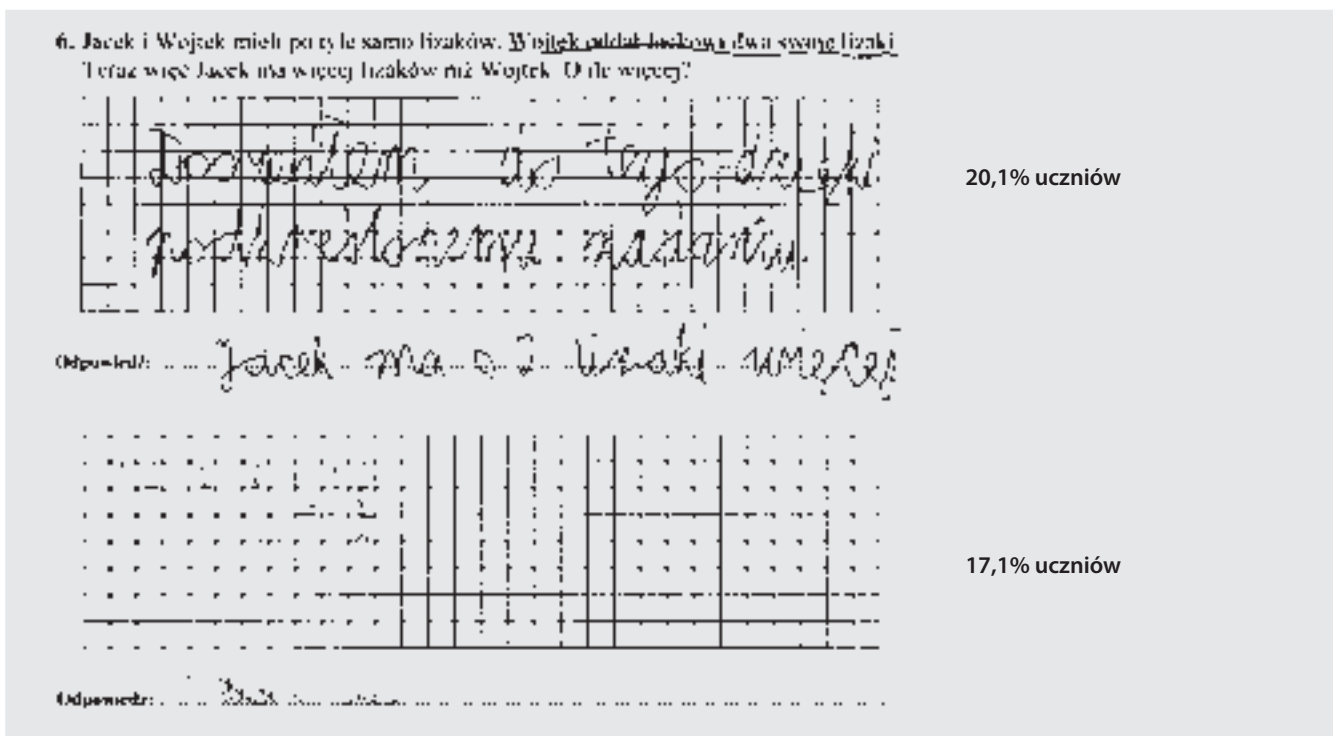 6. Jacek i Wojtek mieli po tyle samo lizaków. Wojtek oddał Jackowi dwa swoje lizaki
Teraz więc Jacek ma więcej lizaków niż Wojtek. O ile więcej?
do tego dzięki
podkreślonemu zdaniu.
20,1% uczniów
Odpowiedź: Jacek ma o 2 lizaki więcej
17,1% uczniów
Odpowiedź: